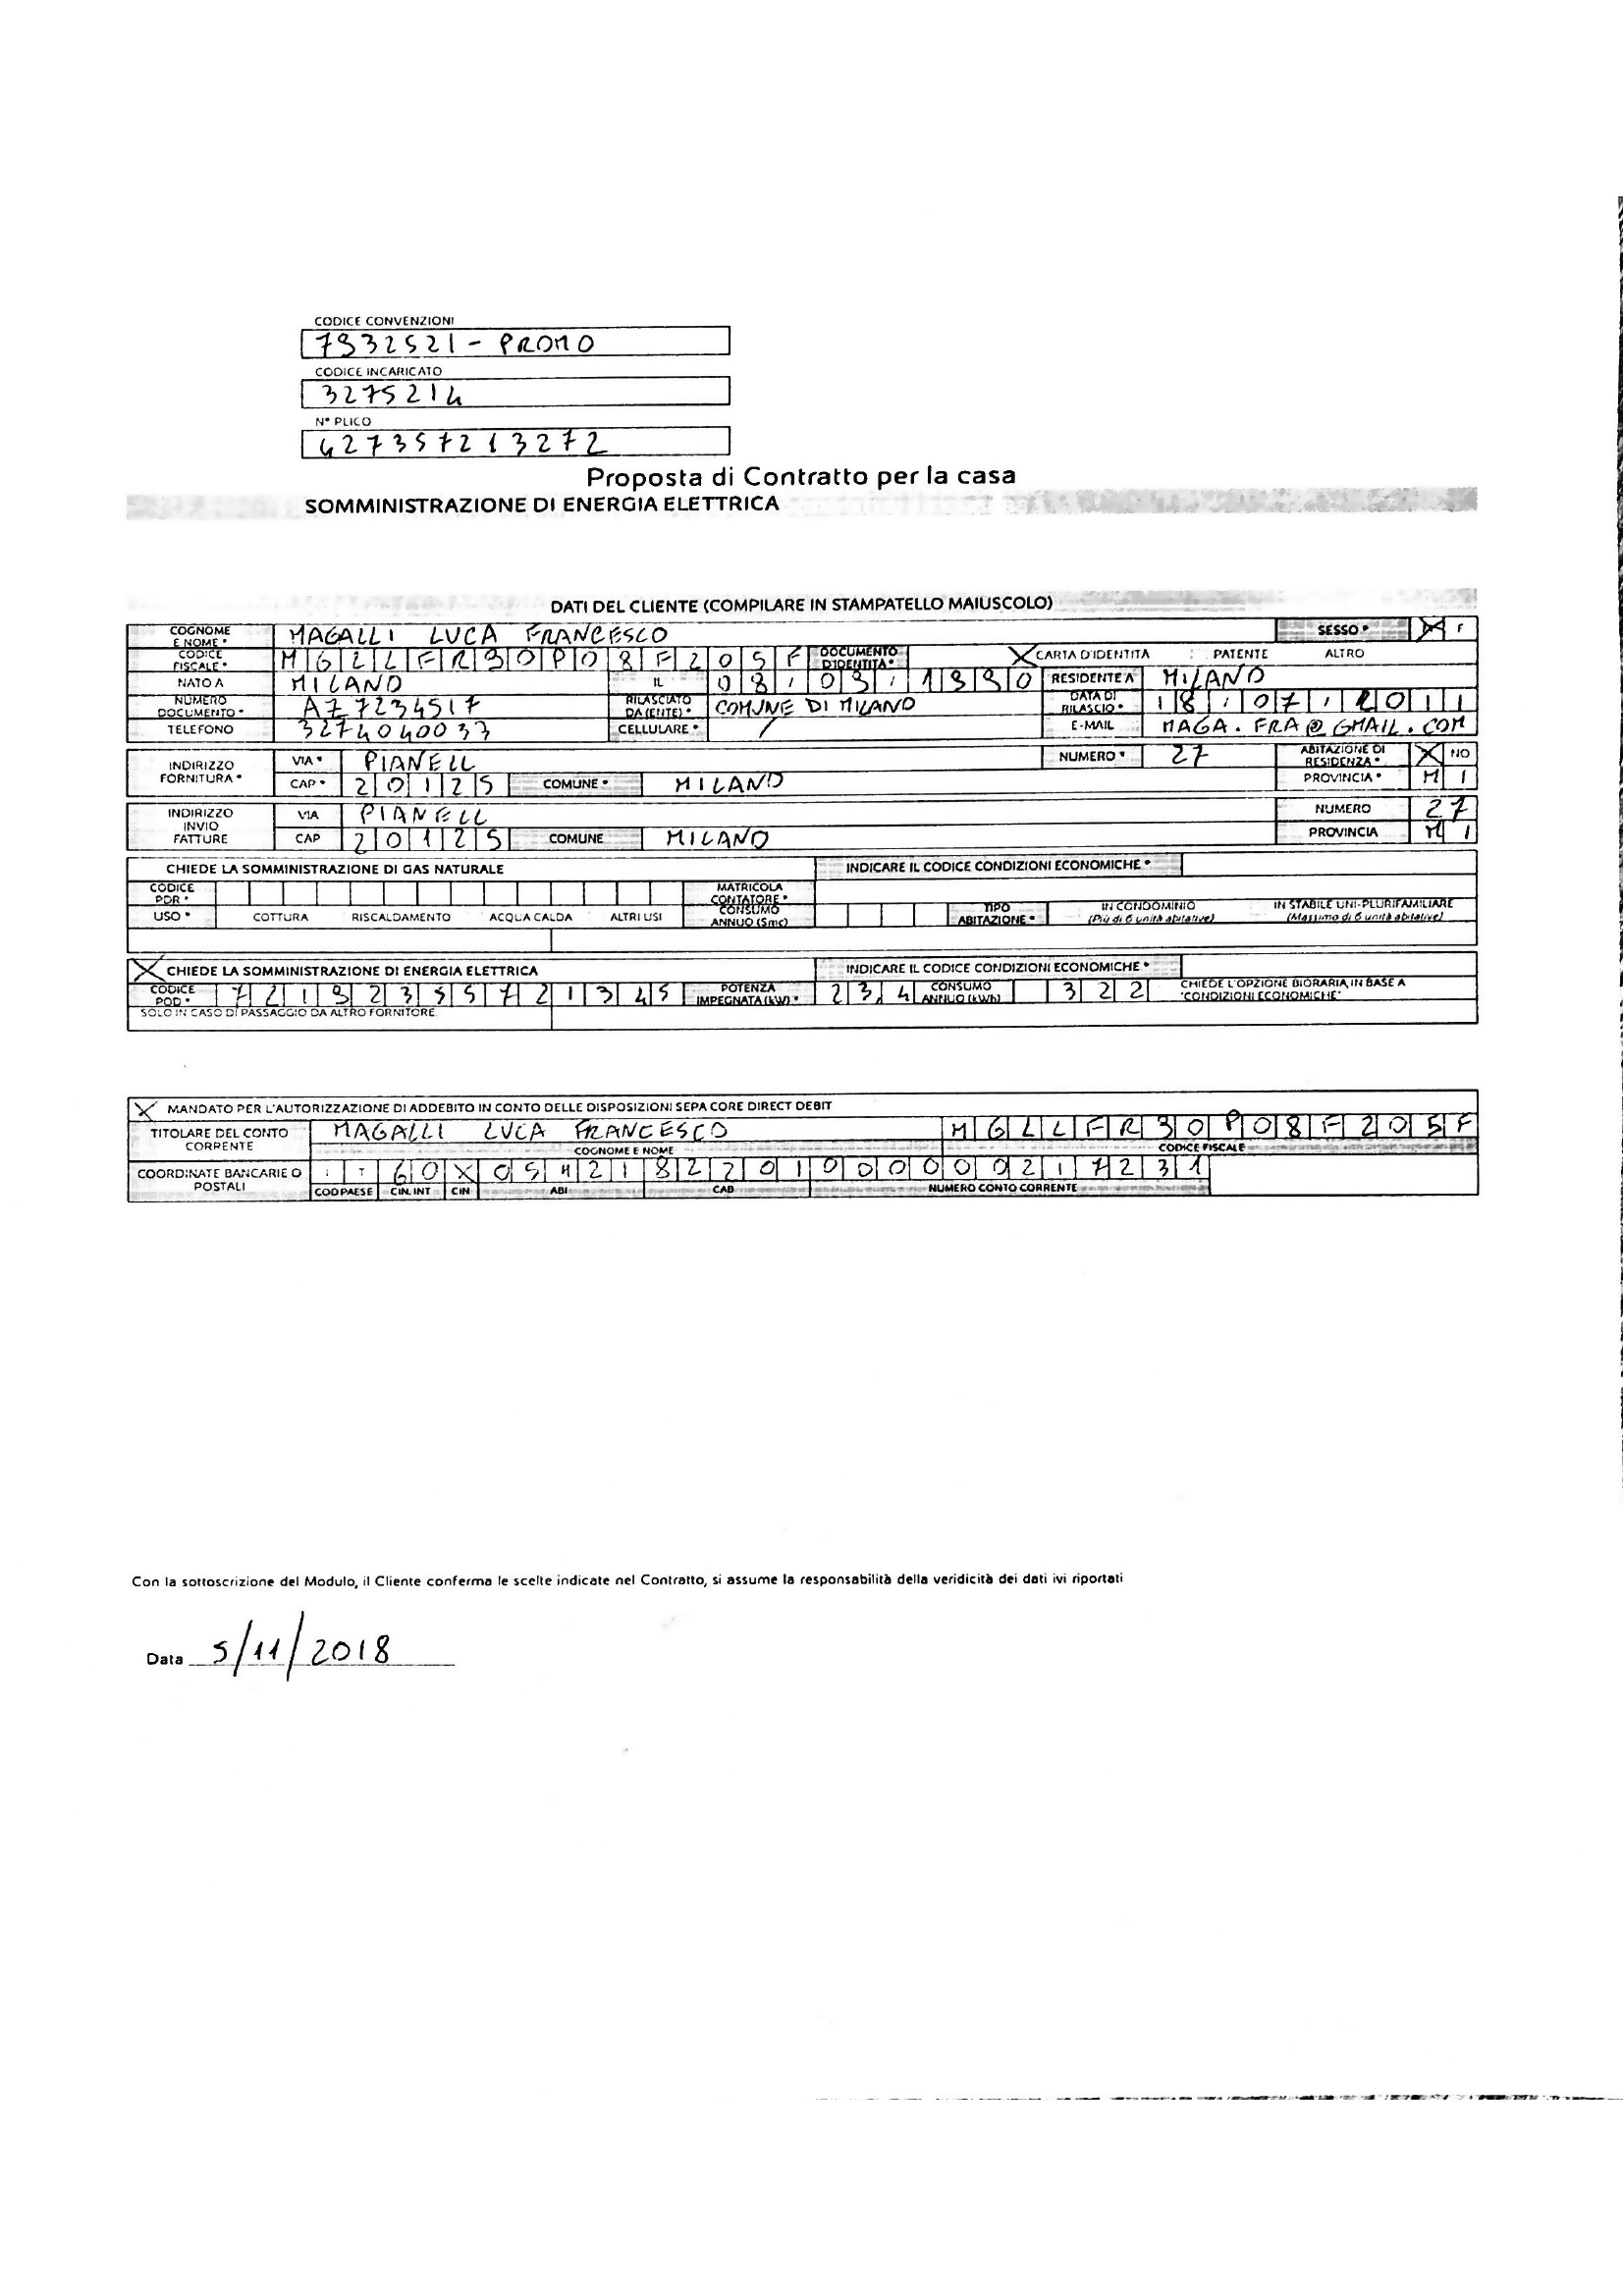 CODICE CONVENZIONI
7932521 - PROMO
CODICE INCARICATO
3275214
N° PLICO
427357213272
Proposta di Contratto per la casa
SOMMINISTRAZIONE DI ENERGIA ELETTRICA
DATI DEL CLIENTE (COMPILARE IN STAMPATELLO MAIUSCOLO)
COGNOME E NOME * MAGALLI LUCA FRANCESCO SESSO * M F
CODICE FISCALE * MGLLFR90P08F205F DOCUMENTO D'IDENTITA * CARTA D'IDENTITA PATENTE ALTRO
NATO A MILANO IL 08/09/1990 RESIDENTE A MILANO
NUMERO DOCUMENTO * A77234517 RILASCIATO DA (ENTE) * COMUNE DI MILANO DATA DI RILASCIO * 18/07/2011
TELEFONO 3274040033 CELLULARE * / E-MAIL MAGA.FRA@GMAIL.COM
INDIRIZZO FORNITURA * VIA * PIANELL NUMERO * 27 ABITAZIONE DI RESIDENZA * NO
CAP * 20125 COMUNE * MILANO PROVINCIA * MI
INDIRIZZO INVIO FATTURE VIA PIANELL NUMERO 27
CAP 20125 COMUNE MILANO PROVINCIA MI
CHIEDE LA SOMMINISTRAZIONE DI GAS NATURALE INDICARE IL CODICE CONDIZIONI ECONOMICHE *
CODICE PDR * MATRICOLA CONTATORE *
USO * COTTURA RISCALDAMENTO ACQUA CALDA ALTRI USI CONSUMO ANNUO (Smc) TIPO ABITAZIONE * IN CONDOMINIO (Più di 6 unità abitative) IN STABILE UNI-PLURIFAMILIARE (Massimo di 6 unità abitative)
CHIEDE LA SOMMINISTRAZIONE DI ENERGIA ELETTRICA INDICARE IL CODICE CONDIZIONI ECONOMICHE *
CODICE POD * 72192355721345 POTENZA IMPEGNATA (kW) * 23,4 CONSUMO ANNUO (kWh) 322 CHIEDE L'OPZIONE BIORARIA, IN BASE A "CONDIZIONI ECONOMICHE"
SOLO IN CASO DI PASSAGGIO DA ALTRO FORNITORE
MANDATO PER L'AUTORIZZAZIONE DI ADDEBITO IN CONTO DELLE DISPOSIZIONI SEPA CORE DIRECT DEBIT
TITOLARE DEL CONTO CORRENTE MAGALLI LUCA FRANCESCO MGLLFR90P08F205F
COGNOME E NOME CODICE FISCALE
COORDINATE BANCARIE O POSTALI IT 60 X 05421 82201 000000217231
COD PAESE CIN. INT CIN ABI CAB NUMERO CONTO CORRENTE
Con la sottoscrizione del Modulo, il Cliente conferma le scelte indicate nel Contratto, si assume la responsabilità della veridicità dei dati ivi riportati
Data 5/11/2018